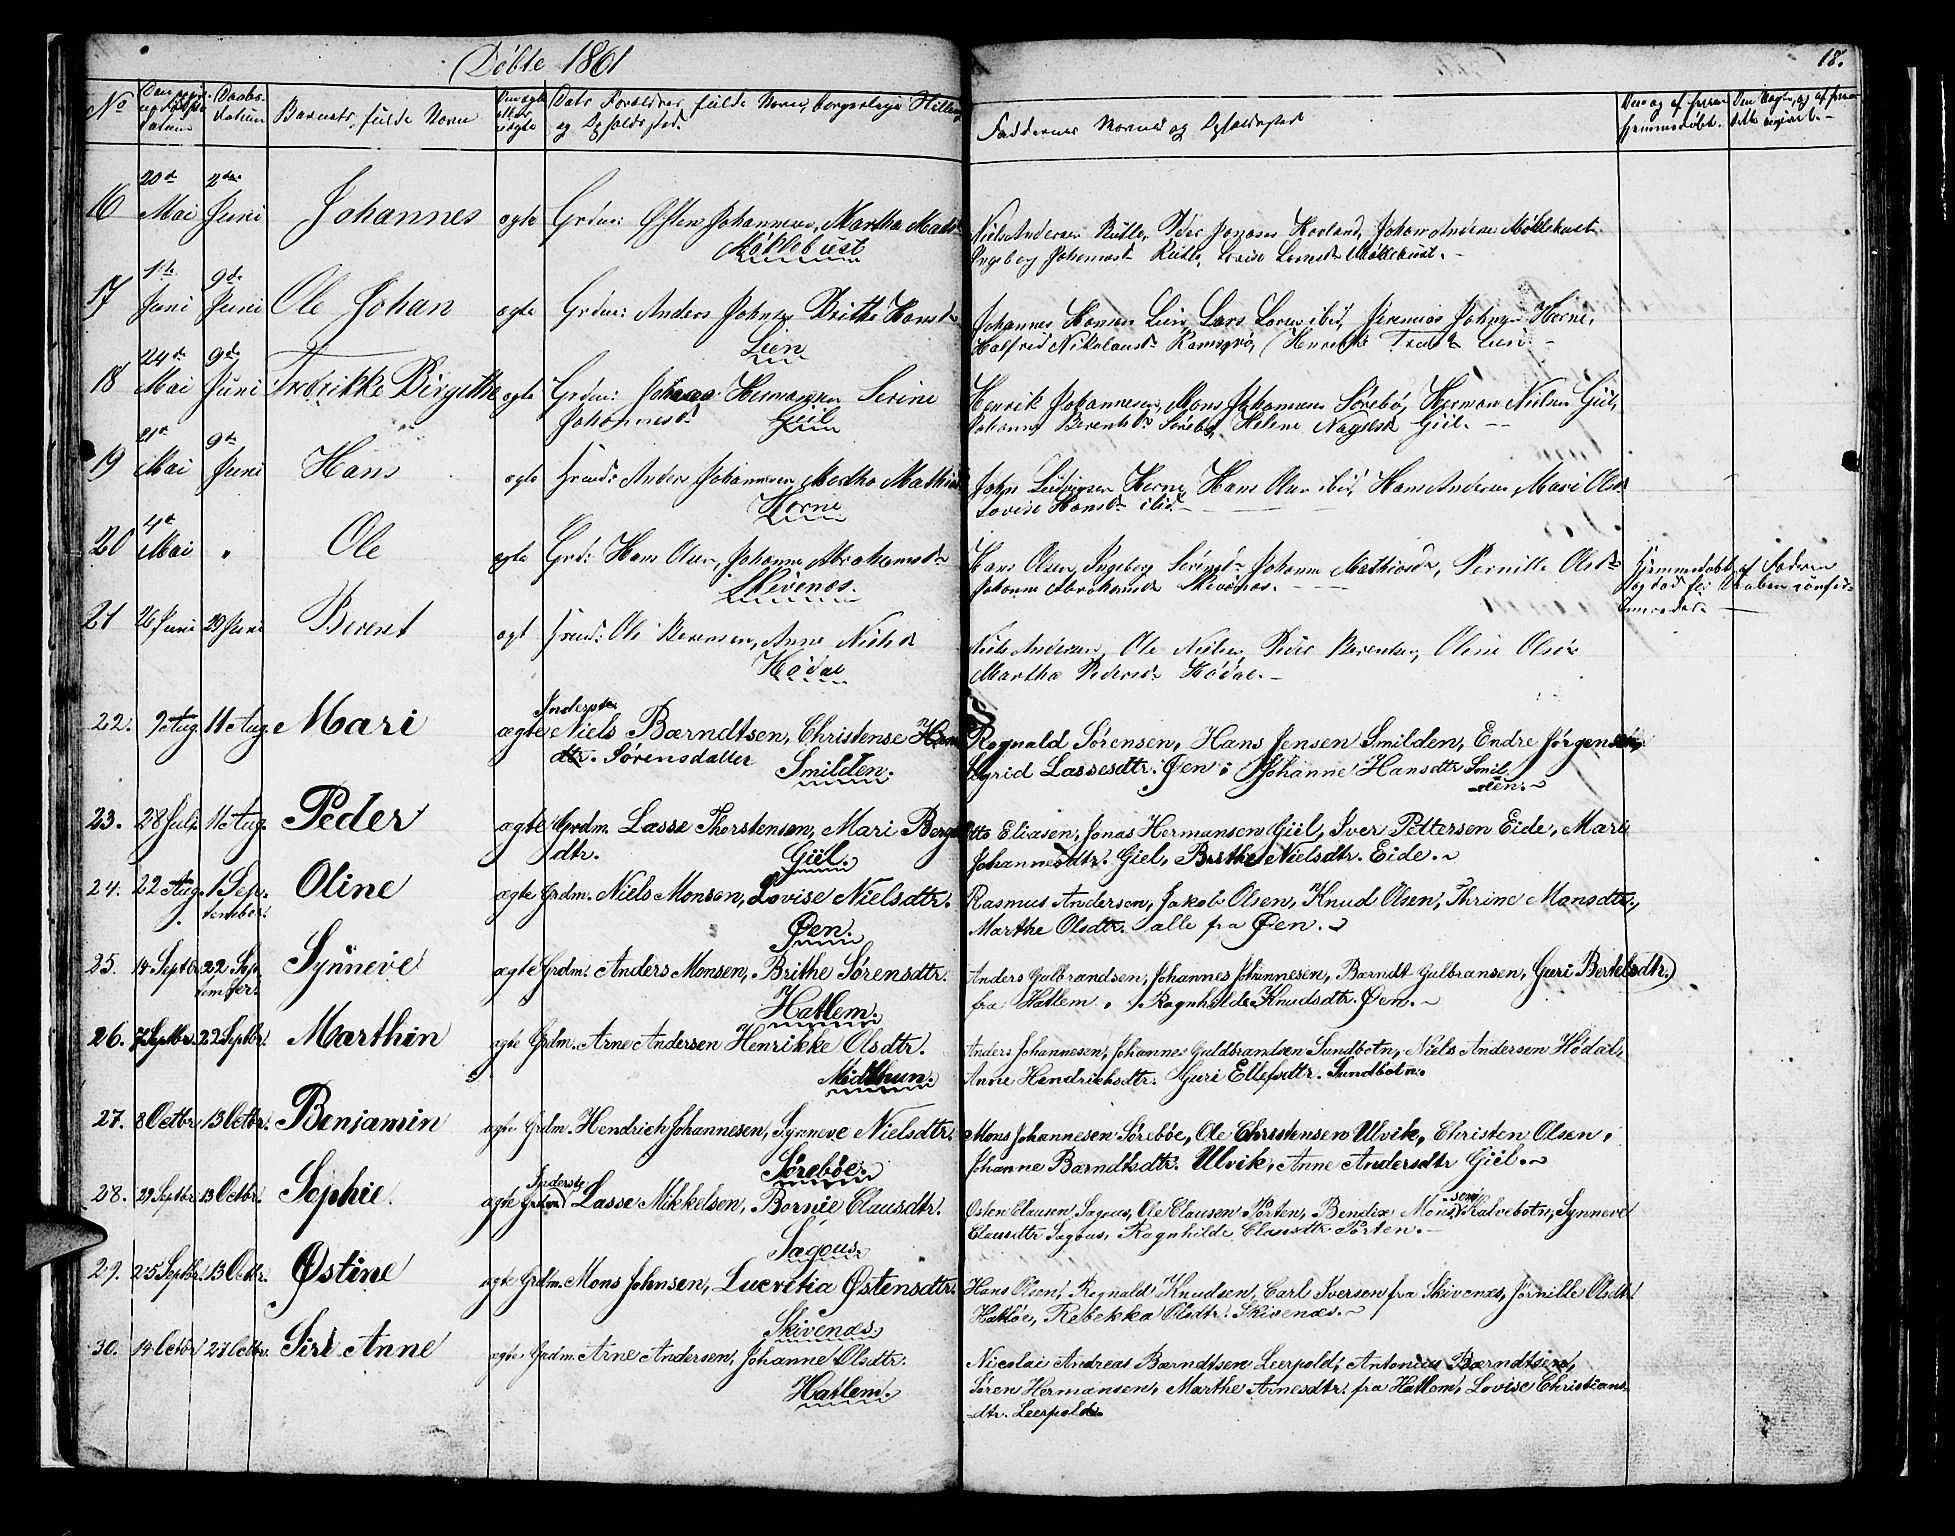 Døbte 1861
18.
No Barnets fulde Navn
Faddernes Navne og Opholdssted
16 20de Mai 2den Juni Johannes ægte Johannesen, Martha Mads
Møklebust
Niels Andersen Rutle, Peder Jonasen Hovland, Møklebust
Ingeborg Johannesd. Rutle, Møklebust.
17 1ste Juni 9de Juni Ole Johan ægte Grdm: Anders Johnsen Brithe Hansd.
Lien
Johannes Hansen Lien, Lars ibid, Jeremias Johnsen Herne,
18 24de Mai 9de Juni Fredrikke Birgithe ægte Grdm: Hermansen Serine
Johannesd. Giil
Henrik Johannesen, Mons Johannesen Sørebø, Herman Nielsen Giil,
Johanne Berentsd. Sørebø, Helene Giil.
19 21de Mai 9de Juni Hans ægte Anders Johannesen, Martha Mathias
Herne
John Ludvigsen Herne, Hans Olsen ibid, Hans Andersen, Mari Olsd.
Lovise Hansd. ibid.
20 4de Mai " Ole ægte Grd: Hans Olsen, Johanne Abrahamsd.
Skivenes.
Hans Olsen, Ingeborg Johanne Mathiasd., Pernille Olsd.
Johanne Abrahamsd. Skivenes.
Hjemmedøbt af Faderen
21 26 Juni 29 Juni Berent ægt Ole Berensen, Anne Nielsd.
Hødal
Niels Andersen, Ole Nielsen, Peder Berentsen, Oline Olsd.
Martha Pedersd. Hødal.
22. 9 Aug. 11 Aug. Mari ægte Inderste Niels Barndtsen, Christense Hans
dtr. Sørensdatter Smilden.
Rognald Sørensen, Hans Jensen Smilden, Endre Jørgensen,
Sigrid Lassesdtr. Øen, Johanne Hansdtr. Smil
den.
23. 28 Juli 11 Aug. Peder ægte Grdm. Lasse Thorstensen, Mari
dtr. Giil.
Otto Eliasen, Jonas Hermansen Giil, Iver Pettersen Eide, Mari
Johannesdtr. Giel, Brithe Nielsdtr. Eide.
24. 22 Aug. 1 Sep- Oline ægte Grdm. Niels Monsen, Lovise Nielsdtr.
tember.
Øen.
Rasmus Andersen, Jakob Olsen, Knud Olsen, Thrine Monsdtr.,
Marthe Olsdtr. alle fra Øen.
25. 14 Septbr. 22 Sep- Synneve ægte Grdm. Anders Monsen, Brithe Sørensdtr.
tember.
Hatlem.
Anders Gulbrandsen, Johannes Johannesen, Barndt Gulbransen, Guri Bertelsdtr.)
fra Hatlem. Ragnhilde Knudsdtr. Øen.
26. 7 Septbr. 22 Septbr. Marthin ægte Grdm. Arne Andersen Henrikke Olsdtr.
Midthun.
Anders Johannesen, Johannes Guldbrandsen Sundbotn, Niels Andersen Hødal,
Anne Hendriksdtr. Guri Ellefsdtr. Sundbotn.
27. 8 Octbr. 13 Octbr. Benjamin ægte Grdm. Hendrich Johannesen, Synneve Nielsdtr.
Sørebøe.
Mons Johannesen Sørebøe, Ole Christensen Ulvik, Christen Olsen,
Johanne Barndtsdtr. Ulvik, Anne Andersdtr Giel.
28. 29 Septbr. 13 Octbr. Sophie. ægte Inderste Lasse Mikkelsen, Bornie Clausdtr.
Sagous.
Østen Clausen Sagous, Ole Clausen Porten, Bendix Monssen Kalvebotn, Synneve
Clausdtr Sagous, Ragnhilde Clausdtr Porten.
29. 25 Septbr. 13 Octbr. Østine ægte Grdm. Mons Johnsen, Lucretia Østensdtr.
Skivenæs.
Hans Olsen, Rognald Knudsen, Carl Iversen fra Skivenæs, Olsdtr.
Hatløe, Rebekka Olsdtr. Skivenæs.
30. 14 Octbr. 27 Octbr. Siri Anne ægte Grdm. Arne Andersen, Johanne Olsdtr.
Hatlem.
Nicolai Andreas Barndtsen Leerpold, Antonius Barndtsen,
Søren Hermansen, Marthe Arnesdtr. fra Hatlem, Lovise Christians-
dtr. Leerpold.